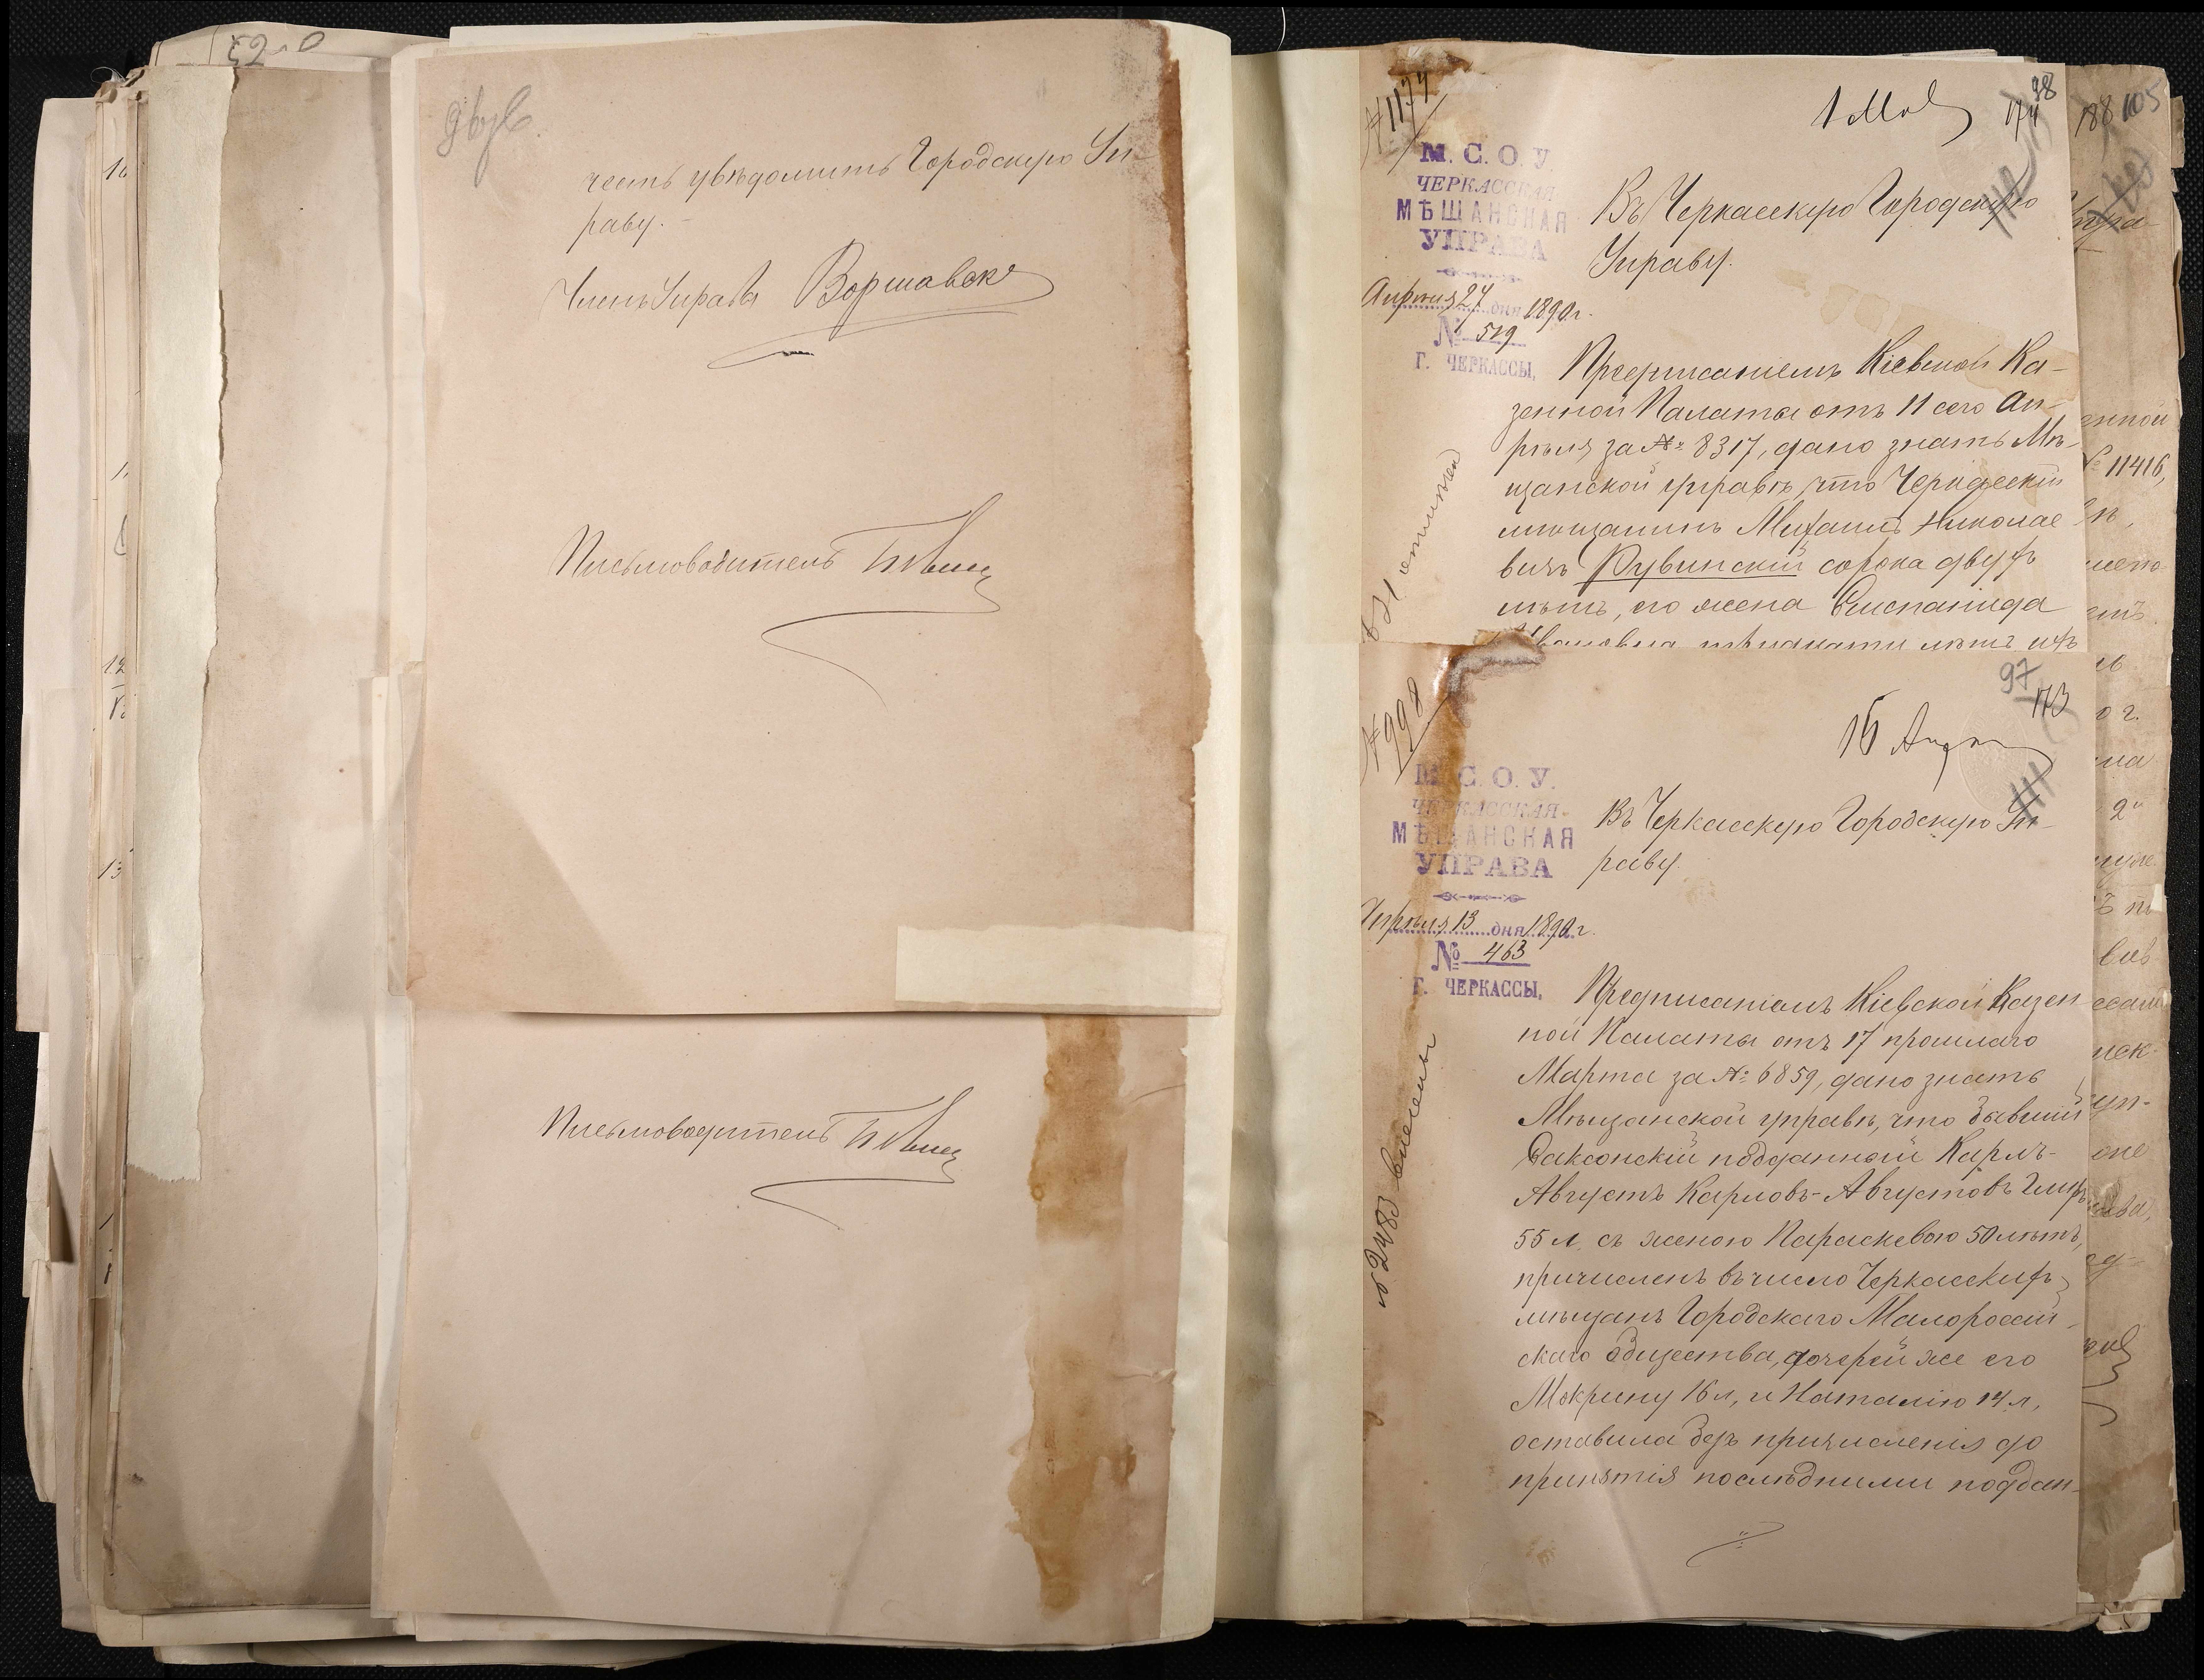 двух
честь увѣдомить Городскую Уп-
раву.
Членъ Управы Воршавск
Письмоводитель
Письмоводитель
№ 1174
1 Мая
98
174
112
М. С. О. У.
ЧЕРКАССКАЯ
МѢЩАНСКАЯ
УПРАВА
Апрѣля 27 дня 1890 г.
№ 519
Г. ЧЕРКАССЫ,
Въ Черкасскую Городскую
Управу.
Предписаніемъ Кіевской Ка-
зенной Палаты отъ 11 сего Ап-
рѣля за № 8317, дано знать Мѣ-
щанской управѣ, что Черкасскій
мѣщанинъ Михаилъ Николае
вичъ Рувинскій сорока двухъ
лѣтъ, его жена Епистаніида
Ивановна тридцати лѣтъ ихъ
№ 998
16 Апр
97
173
111
М. С. О. У.
ЧЕРКАССКАЯ
МѢЩАНСКАЯ
УПРАВА
Апрѣля 13 дня 1890 г.
№ 463
Г. ЧЕРКАССЫ,
Въ Черкасскую Городскую Уп-
раву.
Предписаніемъ Кіевской Казен
ной Палаты отъ 17 прошлаго
Марта за № 6859, дано знать
Мѣщанской управѣ, что бывшій
Саксонскій подданный Карлъ-
Августъ Карловъ-Августовъ
55 л. съ женою Параскевою 50 лѣтъ,
причисленъ въ число Черкасскихъ
мѣщанъ Городского Малороссій-
скаго общества, дочерей же его
Мокрину 16 л, и Наталію 14 л,
оставила безъ причисленія до
принятія послѣдними поддан-
№ 2483
188
105
№ 11416,